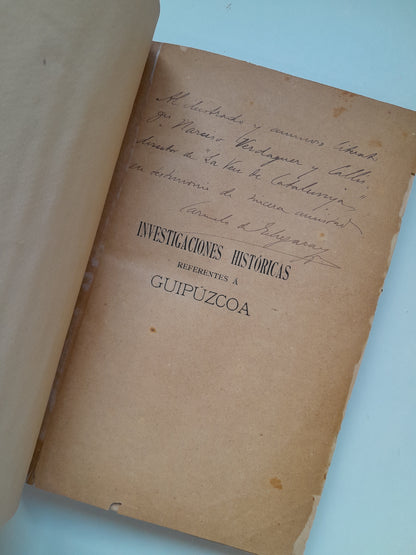 Al ilustrado y animoso literato
Narciso Verdaguer y Callis
director de "La Veu de Catalunya"
en testimonio de sincera amistad
Carmelo de Echegaray
INVESTIGACIONES HISTÓRICAS
REFERENTES Á
GUIPÚZCOA